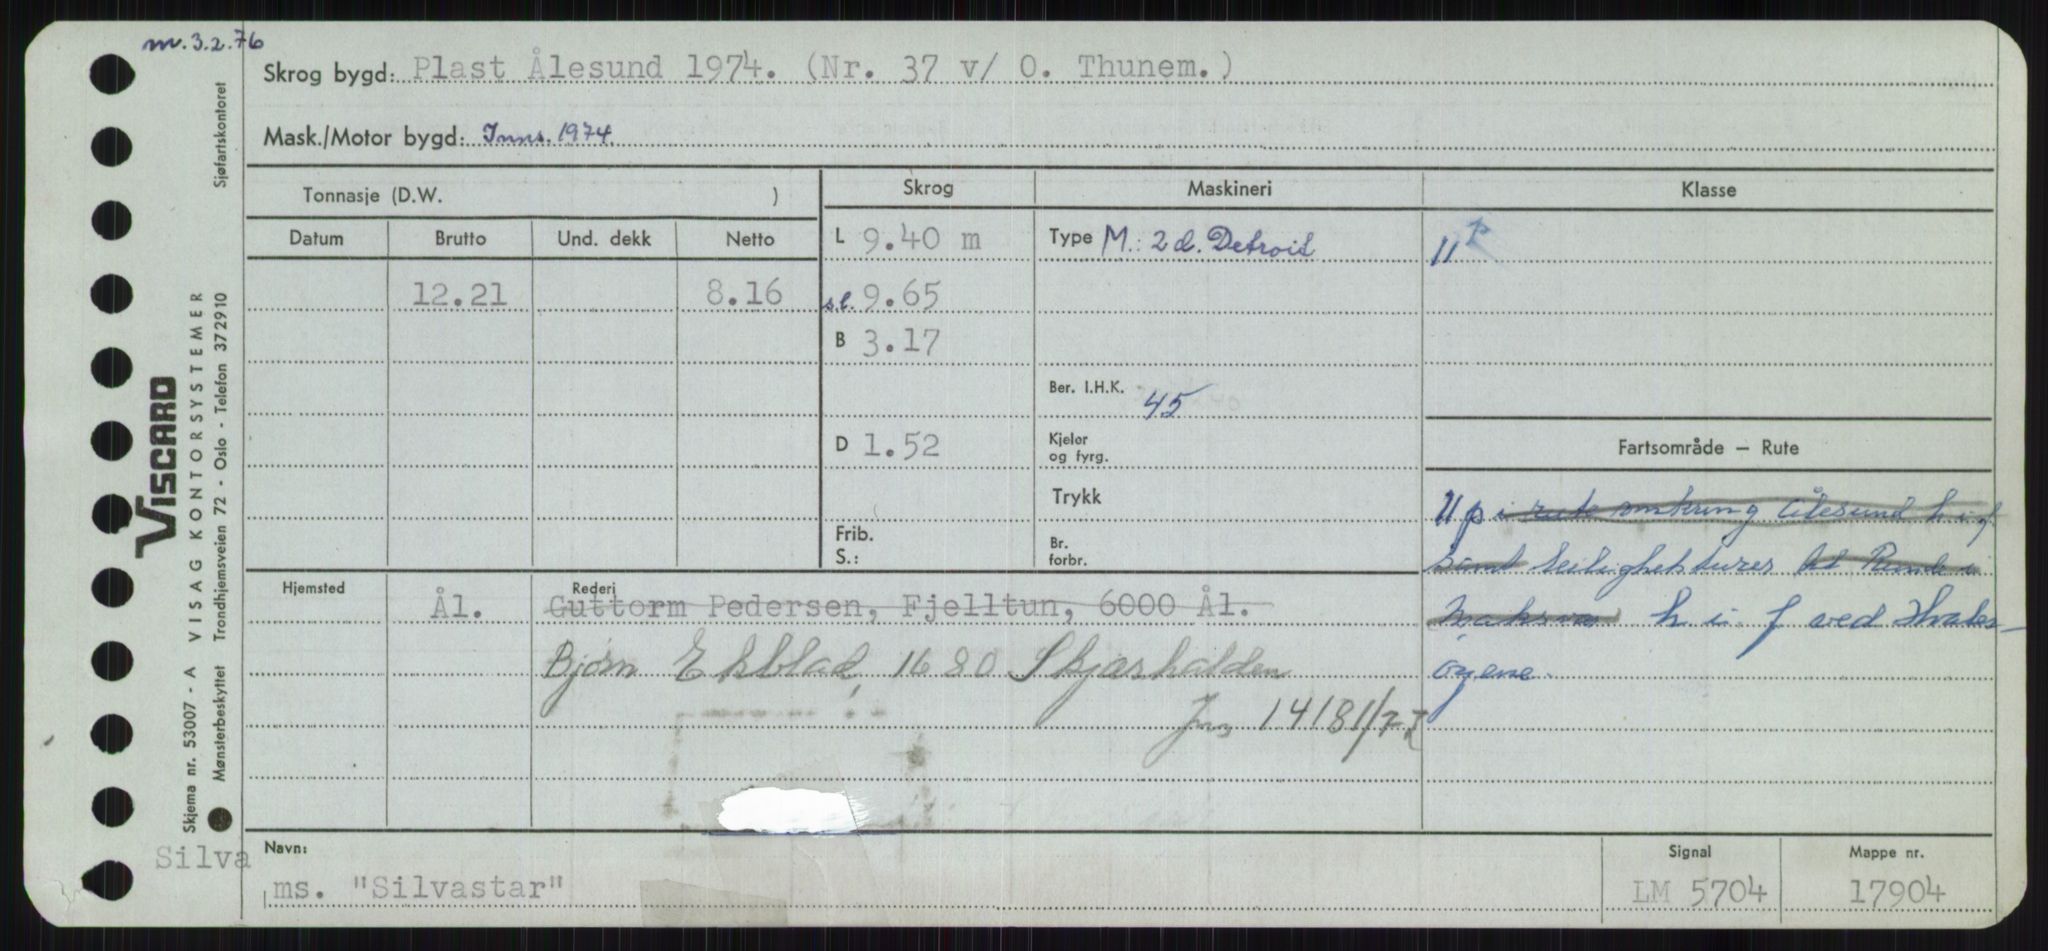 m. 3.2.76
Skrog bygd: Plast Ålesund 1974. (Nr. 37 v/ O. Thunem.)
Mask./Motor bygd: Inns. 1974.
Tonnasje (D.W. )
Skrog
Maskineri
Klasse
Datum Brutto Und. dekk Netto
L 9.40 m
Type M.: 2 d. Detroid
11 P
12.21 8.16
s.l. 9.65
B 3.17
Ber. I.H.K. 45
D 1.52
Kjeler
og fyrg.
Fartsområde – Rute
Trykk
Frib.
S.:
Br.
forbr.
11 p i rute omkring Ålesund h i f
samt leilighetsturer
h i f ved Hvaler-
øyene.
Hjemsted
Ål.
Rederi
Guttorm Pedersen, Fjelltun, 6000 Ål.
Bjørn Ekblad, 1680 Skjærhalden
14181/77
Navn:
Silva
ms. "Silvastar"
Signal
LM 5704
Mappe nr.
17904
VISCARD
Skjema nr. 53007 - A VISAG KONTORSYSTEMER
Mønsterbeskyttet Trondhjemsveien 72 - Oslo - Telefon 372910 Sjøfartskontoret